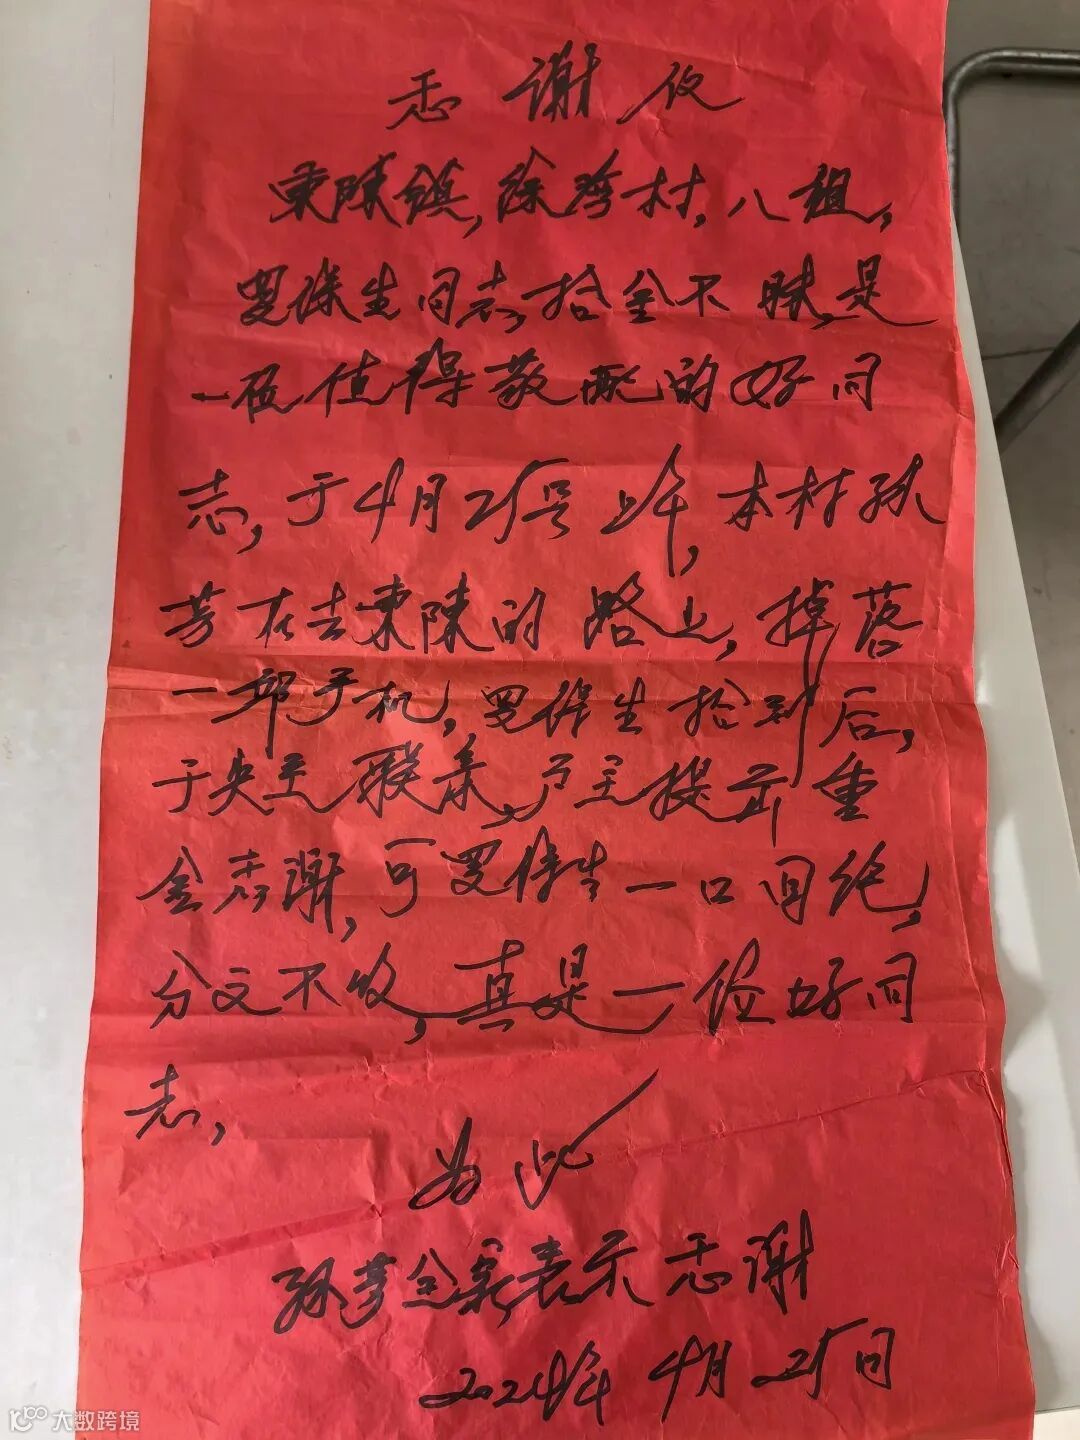 感谢信
東陳鎮,徐湾村,八组,
罗保生同志,拾金不昧,是
一位值得敬佩的好同
志,于4月25号上午,本村孙
芳在去東陳的路上,掉落
一部手机,罗保生捡到后,
于失主联系,户主提出重
金感谢,可罗保生一口回绝,
分文不收,真是一位好同
志,
为此
孙芳全家表示感谢
2024年4月25日
大数跨境